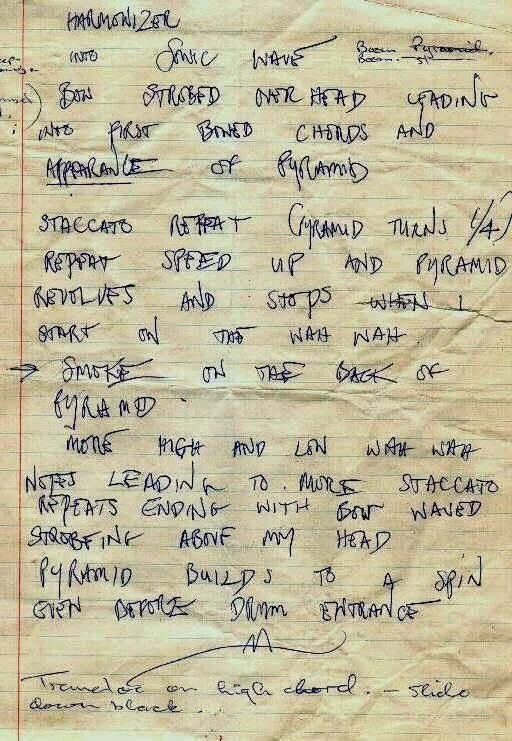 HARMONIZER
INTO SONIC WAVE Boom Pyramid.
BOW STROBED OVER HEAD LEADING
INTO FIRST BOWED CHORDS AND
APPEARANCE OF PYRAMID
STACCATO REPEAT (PYRAMID TURNS 1/4)
REPEAT SPEED UP AND PYRAMID
REVOLVES AND STOPS WHEN I
START ON THE WAH WAH.
→ SMOKE ON THE BACK OF
PYRAMID.
MORE HIGH AND LOW WAH WAH
NOTES LEADING TO MORE STACCATO
REPEATS ENDING WITH BOW WAVED
STROBEING ABOVE MY HEAD
PYRAMID BUILDS TO A SPIN
EVEN BEFORE DRUM ENTRANCE
on high chord. - slide
down black..